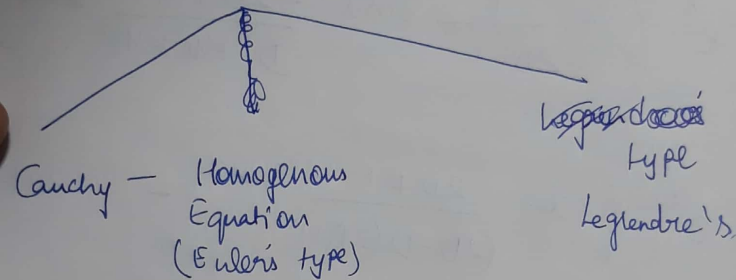 Cauchy — Homogenous
Equation
(Euler's type)
type
Leglendre's